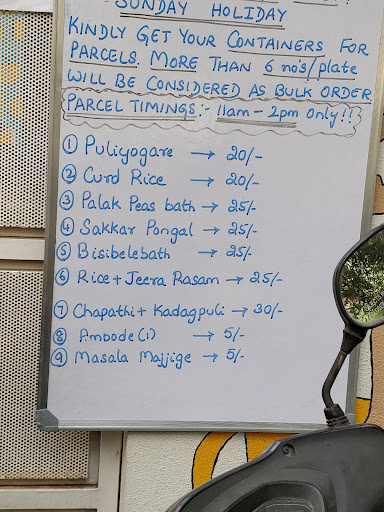 SUNDAY HOLIDAY
KINDLY GET YOUR CONTAINERS FOR
PARCELS. MORE THAN 6 no's/plate
WILL BE CONSIDERED AS BULK ORDER
PARCEL TIMINGS:- 11am - 2pm only!!
① Puliyogare → 20/-
② Curd Rice → 20/-
③ Palak Peas bath → 25/-
④ Sakkar Pongal → 25/-
⑤ Bisibelebath → 25/-
⑥ Rice + Jeera Rasam → 25/-
⑦ Chapathi + Kadagpuli → 30/-
⑧ Ambode (1) → 5/-
⑨ Masala Majjige → 5/-